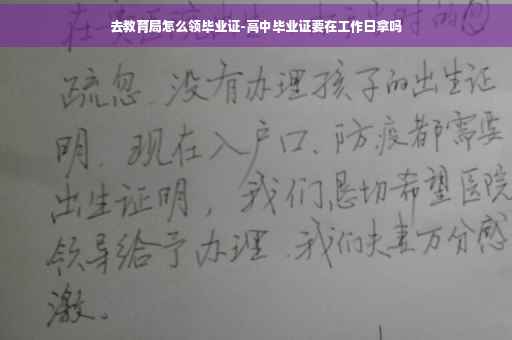 去教育局怎么领毕业证-高中毕业证要在工作日拿吗
疏忽.没有办理孩子的出生证
明.现在入户口、防疫都需要
出生证明，我们恳切希望医院
领导给予办理.我们夫妻万分感
激。